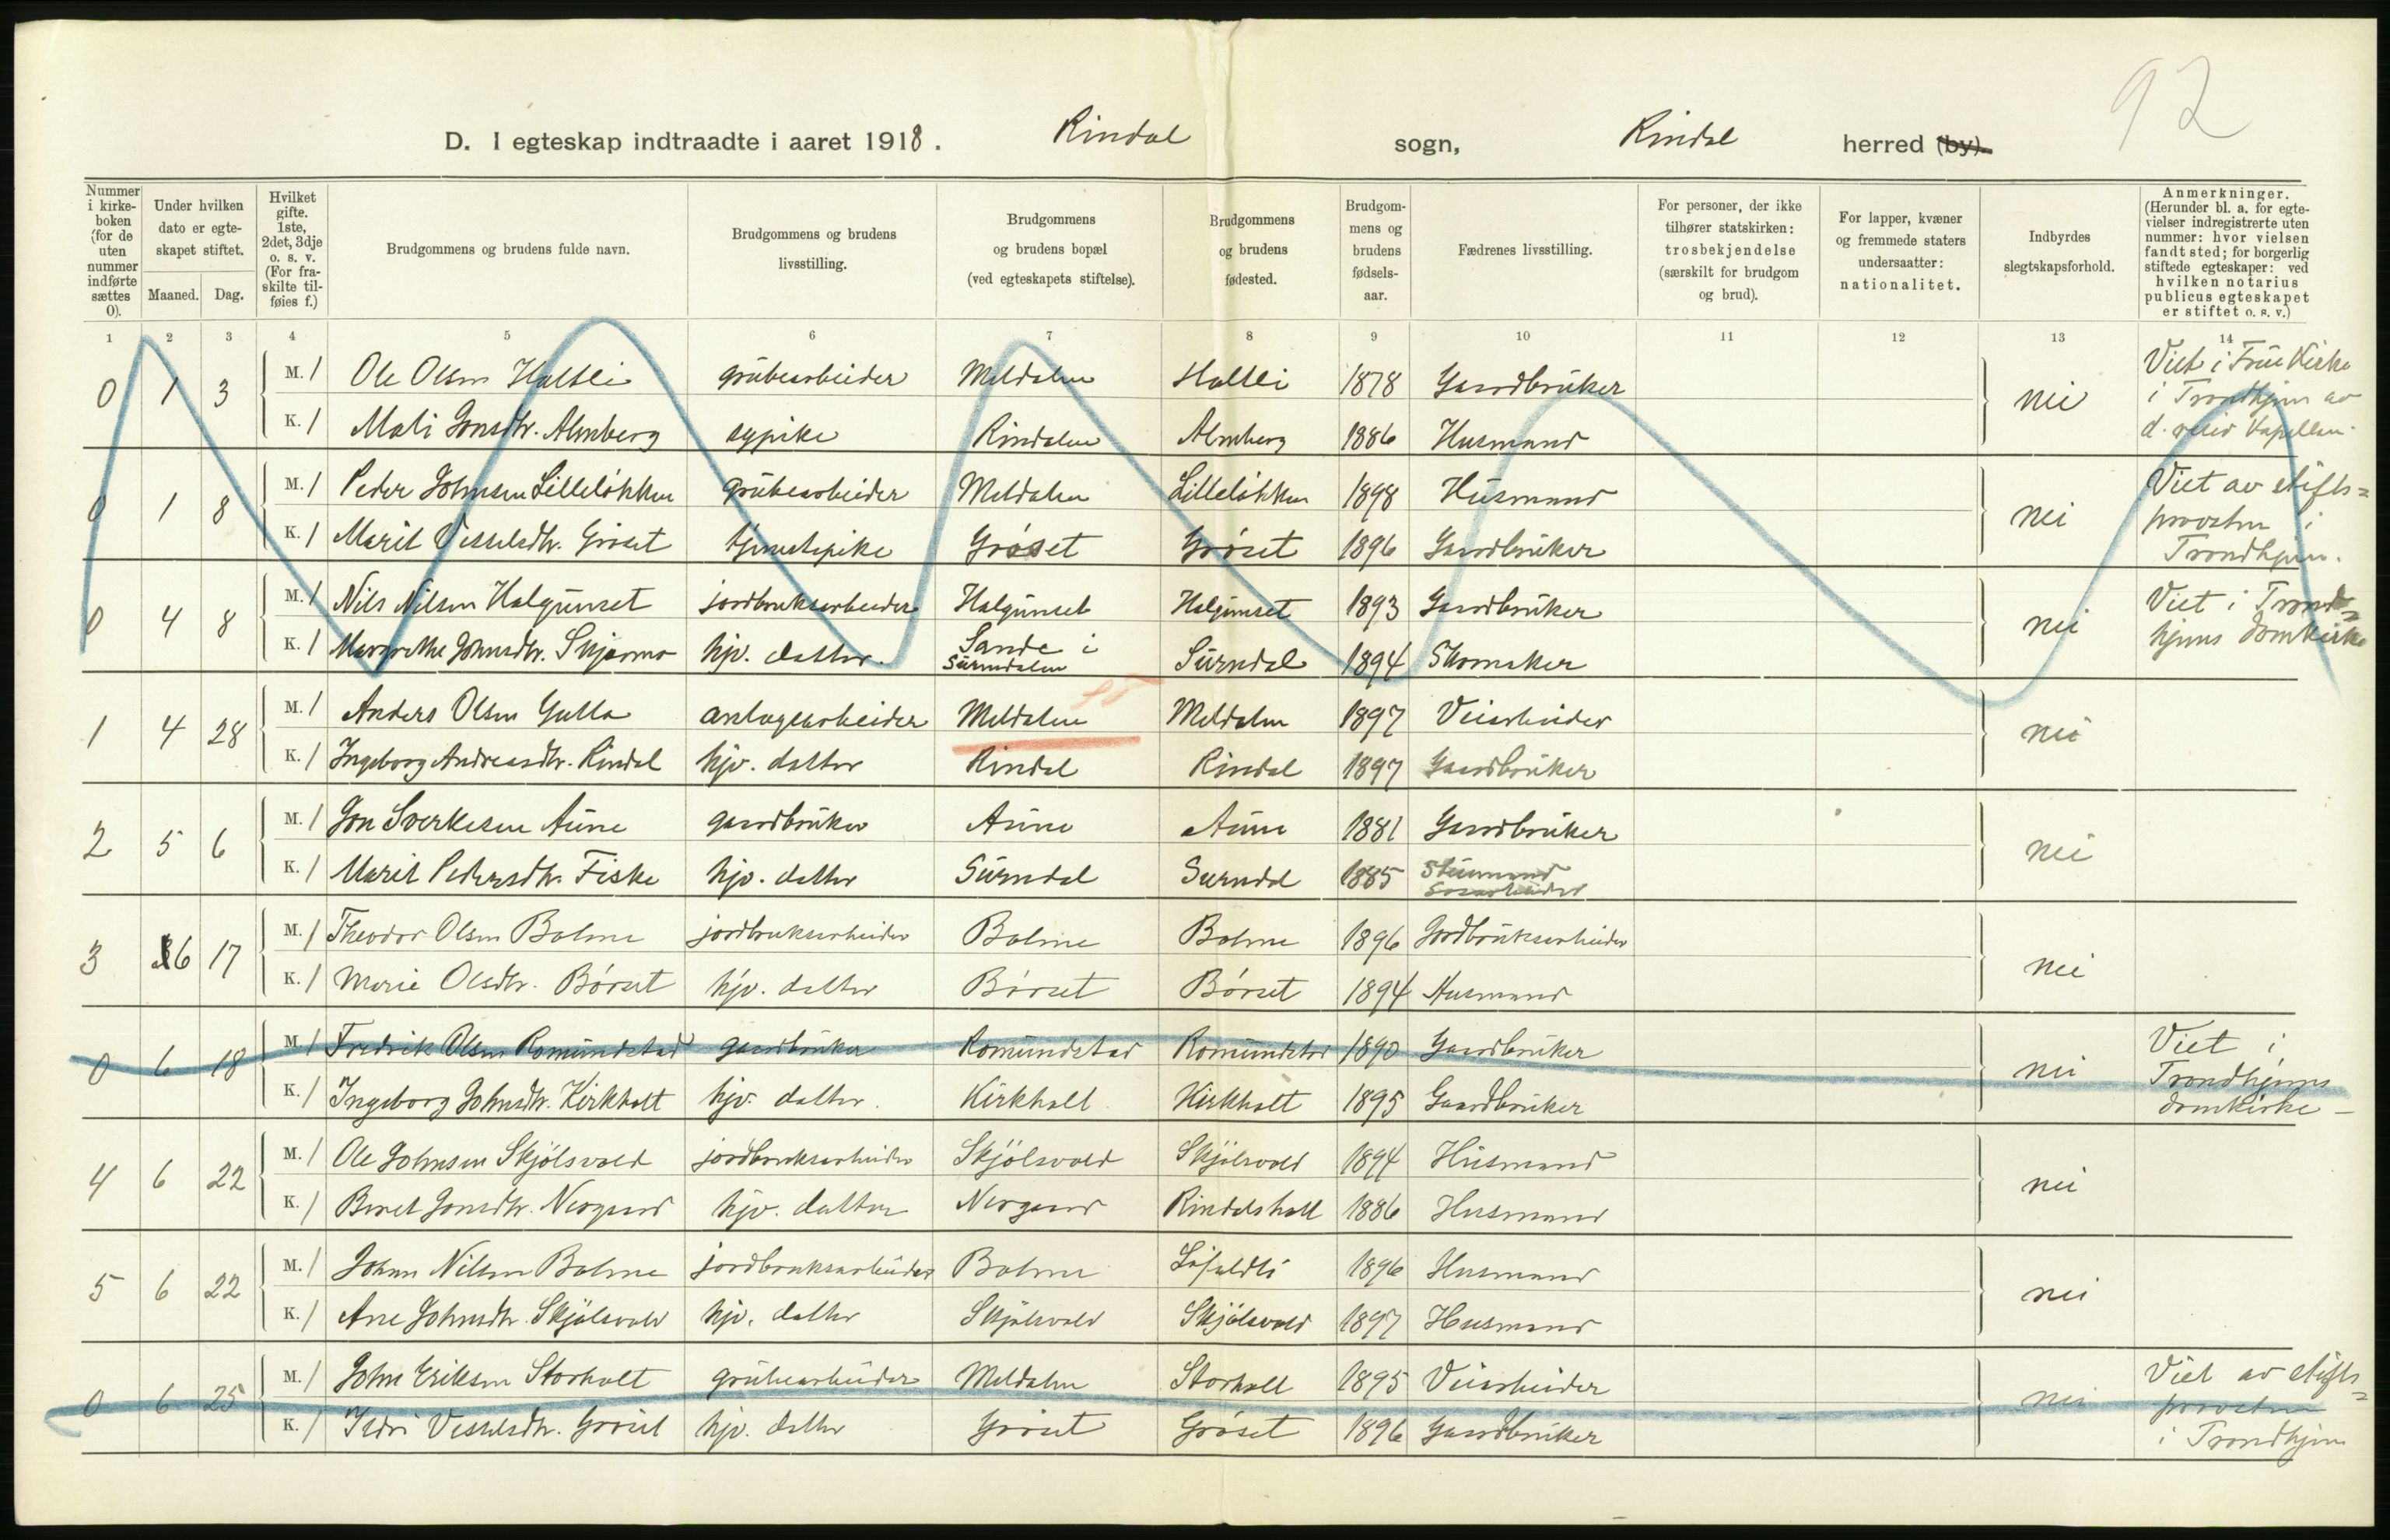 92
D. I egteskap indtraadte i aaret 1918. Rindal sogn, Rindal herred (by).
Nummer i kirke-boken (for de uten nummer indførte sættes 0).
Under hvilken dato er egte-skapet stiftet.
Maaned. Dag.
Hvilket gifte. 1ste, 2det, 3dje o. s. v. (For fra-skilte til-føies f.)
Brudgommens og brudens fulde navn.
Brudgommens og brudens livsstilling.
Brudgommens og brudens bopæl (ved egteskapets stiftelse).
Brudgommens og brudens fødested.
Brudgom-mens og brudens fødsels-aar.
Fædrenes livsstilling.
For personer, der ikke tilhører statskirken: trosbekjendelse (særskilt for brudgom og brud).
For lapper, kvæner og fremmede staters undersaatter: nationalitet.
Indbyrdes slegtskapsforhold.
Anmerkninger. (Herunder bl. a. for egte-vielser indregistrerte uten nummer: hvor vielsen fandt sted; for borgerlig stiftede egteskaper: ved hvilken notarius publicus egteskapet er stiftet o. s. v.)
1 2 3 4 5 6 7 8 9 10 11 12 13 14
0 1 3 M. 1 Ole Olsen Haltli grubearbeider Meldalen Haltli 1878 Gaardbruker nei Viet i Frue Kirke i Trondhjem av
K. 1 Mali Jonsdtr. Almberg sypike Rindalen Almberg 1886 Husmand
0 1 8 M. 1 Peder Johnsen Lilleløkken grubearbeider Meldalen Lilleløkken 1898 Husmand nei Viet av stifts=provsten i Trondhjem.
K. 1 Marit Vesselsdtr. Grøset tjenestepike Grøset Grøset 1896 Gaardbruker
0 4 8 M. 1 Nils Nilsen Halgunset jordbruksarbeider Halgunset Halgunset 1893 Gaardbruker nei Viet i Trond=hjems domkirke
K. 1 Margrethe Johnsdtr. Skjermo hjv. datter. Sande i Surndalen Surndal 1894 Skomaker
1 4 28 M. 1 Anders Olsen Gulla anlægsarbeider Meldalen Meldalen 1897 Veiarbeider nei
K. 1 Ingeborg Andreasdtr. Rindal hjv. datter Rindal Rindal 1897 Gaardbruker
2 5 6 M. 1 Jon Sverkesen Aune gaardbruker Aune Aune 1881 Gaardbruker nei
K. 1 Marit Pedersdtr. Fiske hjv. datter Surndal Surndal 1885
3 6 17 M. 1 Theodor Olsen Bolme jordbruksarbeider Bolme Bolme 1896 Jordbruksarbeider nei
K. 1 Marie Olsdtr. Børset hjv. datter Børset Børset 1894 Husmand
0 6 18 M. 1 Fredrik Olsen Romundstad gaardbruker Romundstad Romundstad 1890 Gaardbruker nei Viet i Trondhjems domkirke –
K. 1 Ingeborg Johnsdtr. Kirkholt hjv. datter. Kirkholt Kirkholt 1895 Gaardbruker
4 6 22 M. 1 Ole Johnsen Skjølsvold jordbruksarbeider Skjølsvold Skjølsvold 1894 Husmand nei
K. 1 Beret Jonsdtr. Nergaard hjv. datter Nergaard Rindalsholt 1886 Husmand
5 6 22 M. 1 Johan Nilsen Bolme jordbruksarbeider Bolme Løfaldli 1896 Husmand nei
K. 1 Ane Johnsdtr. Skjølsvold hjv. datter Skjølsvold Skjølsvold 1897 Husmand
0 6 25 M. 1 John Eriksen Storholt grubearbeider Meldalen Storholt 1895 Veiarbeider nei Viet av stifts=provsten i Trondhjem
K. 1 Vesselsdtr. Grøset hjv. datter Grøset Grøset 1896 Gaardbruker